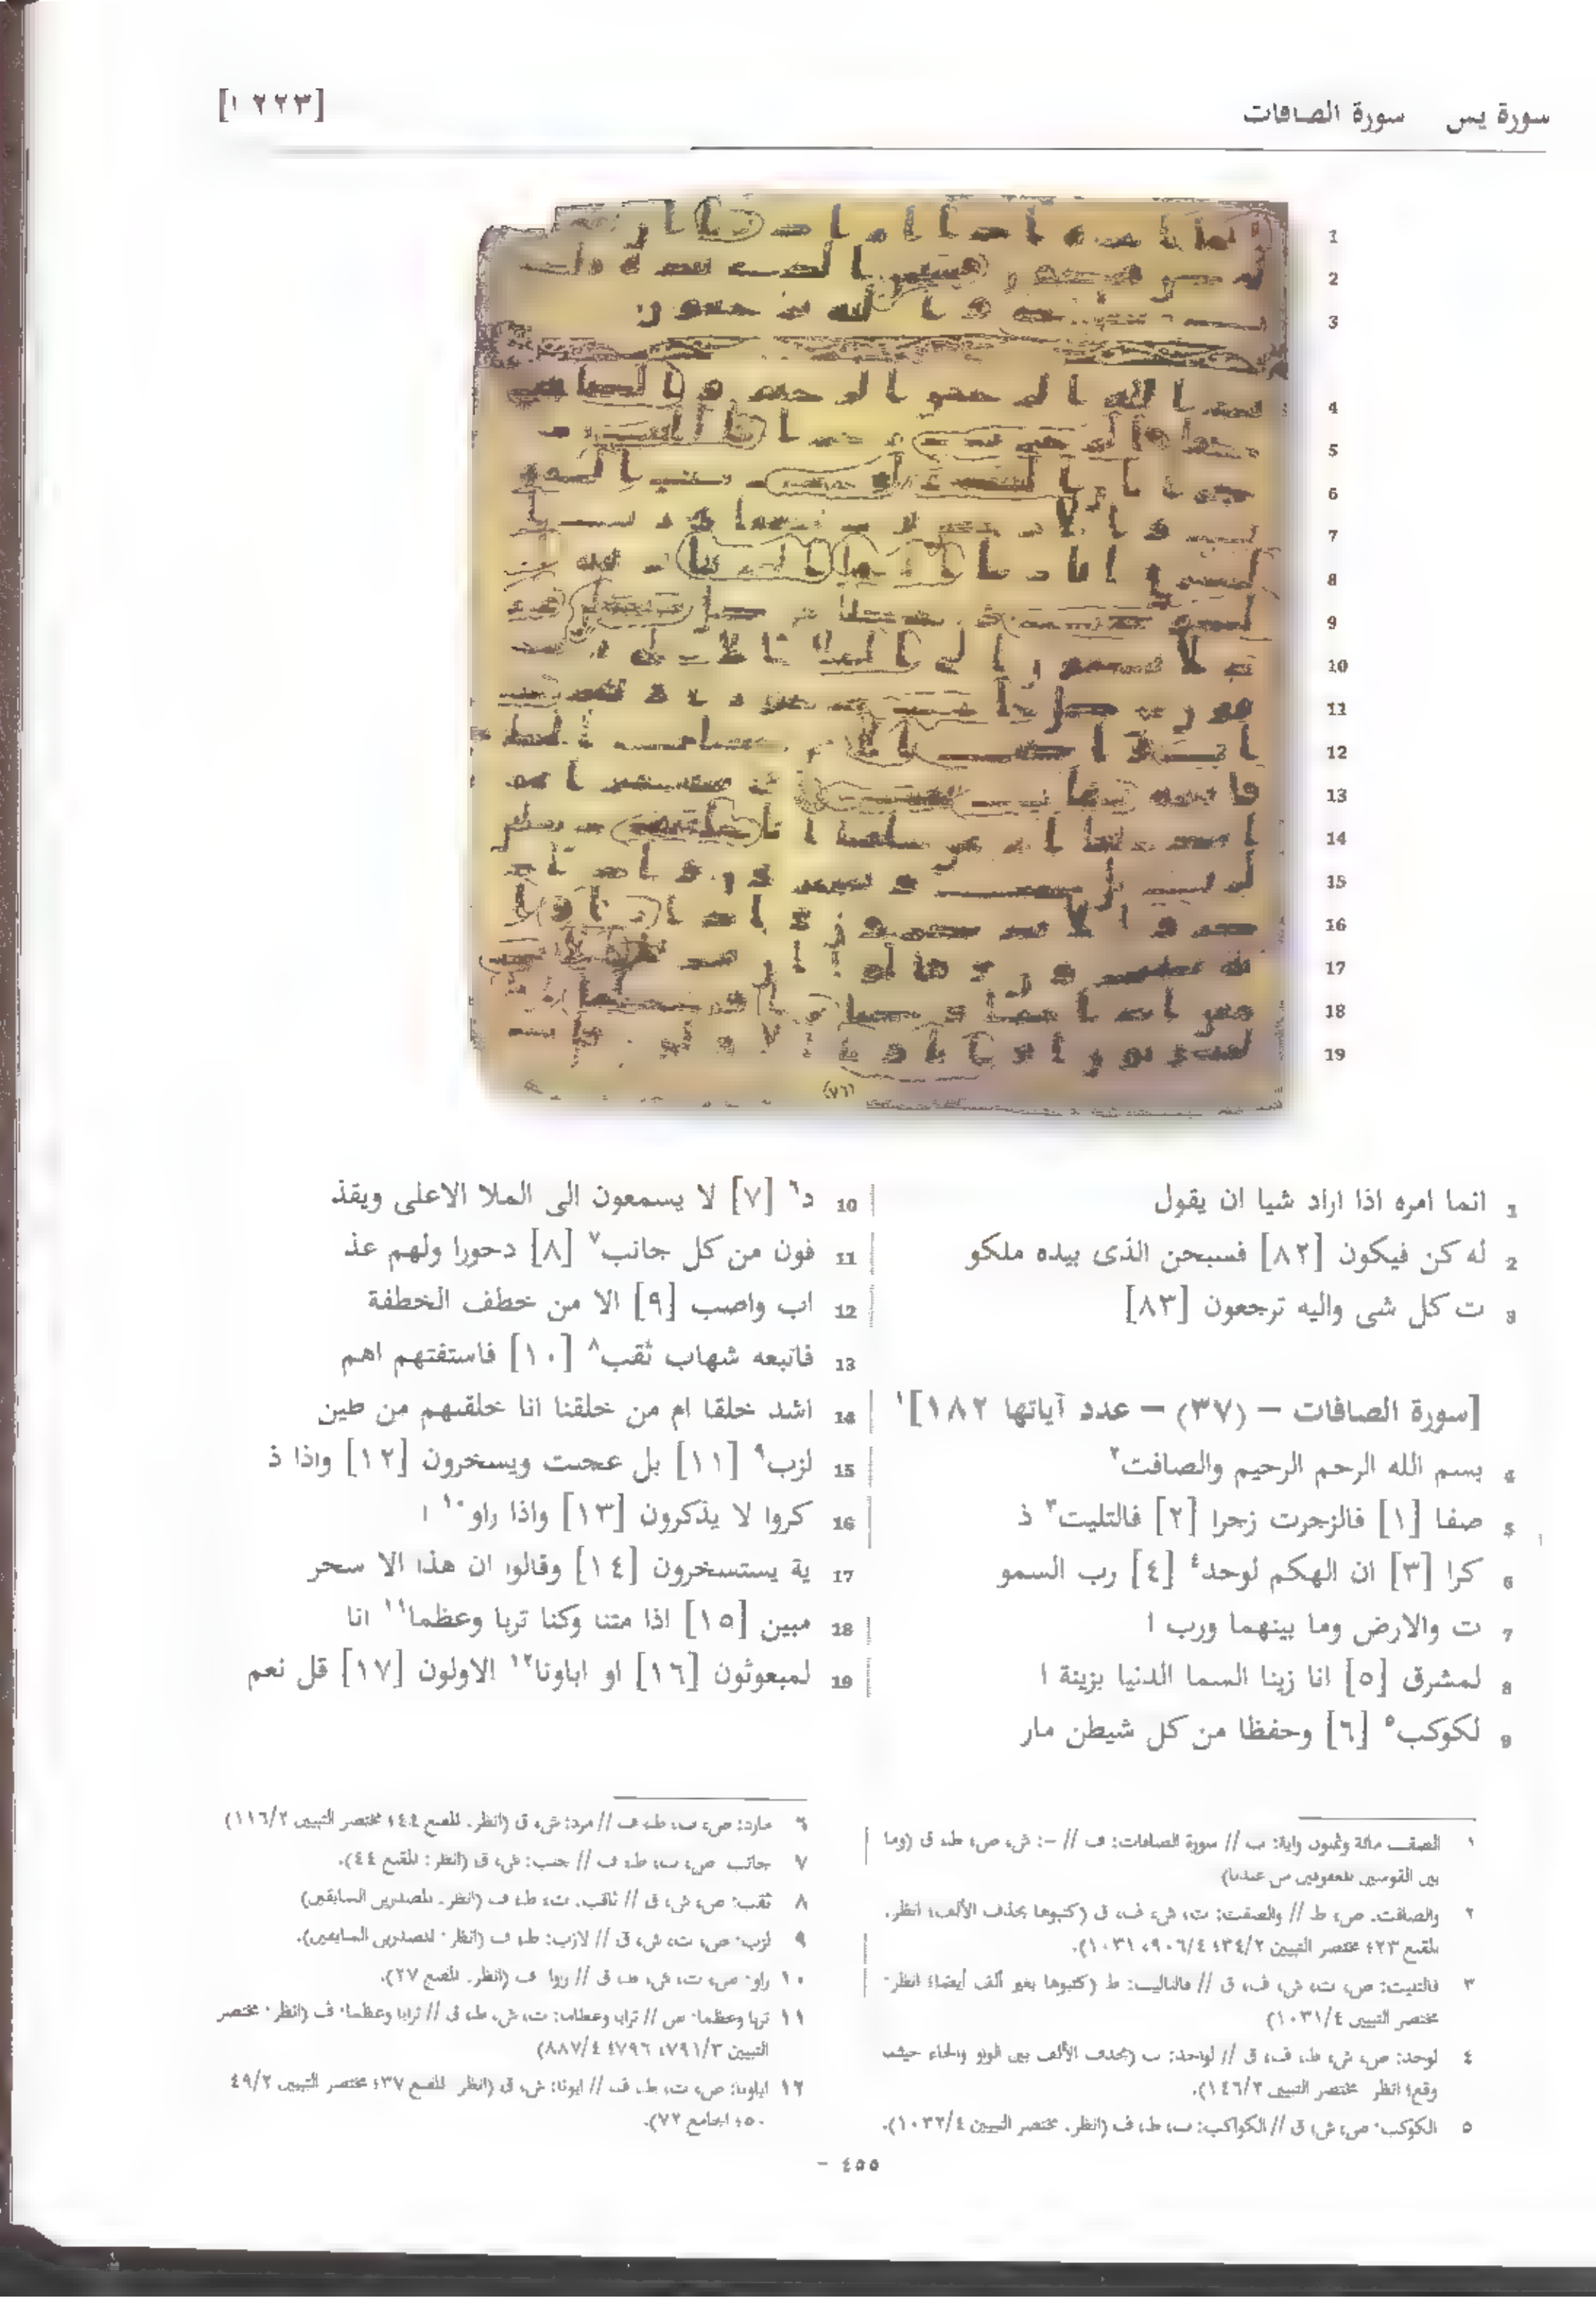 سورة يس سورة الصافات
[٢٢٣ ١]
1 انما امره اذا اراد شيا ان يقول
2 له كن فيكون [٨٢] فسبحن الذى بيده ملكو
3 ت كل شى واليه ترجعون [٨٣]
[سورة الصافات – (٣٧) – عدد آياتها ١٨٢]١
4 بسم الله الرحم الرحيم والصافت٢
5 صفا [١] فالزجرت زجرا [٢] فالتليت٣ ذ
6 كرا [٣] ان الهكم لوحد٤ [٤] رب السمو
7 ت والارض وما بينهما ورب ا
8 لمشرق [٥] انا زينا السما الدنيا بزينة ا
9 لكوكب٥ [٦] وحفظا من كل شيطن مار
10 د٦ [٧] لا يسمعون الى الملا الاعلى ويقذ
11 فون من كل جانب٧ [٨] دحورا ولهم عذ
12 اب واصب [٩] الا من خطف الخطفة
13 فاتبعه شهاب ثقب٨ [١٠] فاستفتهم اهم
14 اشد خلقا ام من خلقنا انا خلقنهم من طين
15 لزب٩ [١١] بل عجبت ويسخرون [١٢] واذا ذ
16 كروا لا يذكرون [١٣] واذا راو١٠ ا
17 ية يستسخرون [١٤] وقالوا ان هذا الا سحر
18 مبين [١٥] اذا متنا وكنا تربا وعظما١١ انا
19 لمبعوثون [١٦] او اباونا١٢ الاولون [١٧] قل نعم
١ الصفت مائة وثمنون واية: ت // سورة الصافات: ف // –: ش، ص، ط، ق (وما
بين القوسين المعقوفين من عندنا)
٢ والصافت: ص، ط // والصفت: ت، ش، ف، ق (كتبوها بحذف الألف؛ انظر:
المقنع ٢٣؛ مختصر التبيين ٣٤/٢؛ ٩٠٦/٤، ١٠٣١).
٣ فالتليت: ص، ت، ش، ف، ق // فالتاليت: ط (كتبوها بغير ألف أيضا؛ انظر:
مختصر التبيين ١٠٣١/٤)
٤ لوحد: ص، ش، ط، ف، ق // لواحد: ت (بحذف الألف بين الواو والحاء حيث
وقع؛ انظر: مختصر التبيين ١٤٦/٢).
٥ الكوكب: ص، ش، ق // الكواكب: ت، ط، ف (انظر: مختصر التبيين ١٠٣٢/٤).
٦ مارد: ص، ت، ط، ف // مرد: ش، ق (انظر: المقنع ٤٤؛ مختصر التبيين ١١٦/٢)
٧ جانب: ص، ت، ط، ف // جنب: ش، ق (انظر: المقنع ٤٤).
٨ ثقب: ص، ش، ق // ثاقب: ت، ط، ف (انظر: المصدرين السابقين)
٩ لزب: ص، ت، ش، ق // لازب: ط، ف (انظر: المصدرين السابقين).
١٠ راو: ص، ت، ش، ط، ق // روا: ف (انظر: المقنع ٢٧).
١١ تربا وعظما: ص // ترابا وعظاما: ت، ش، ط، ق // ترابا وعظما: ف (انظر: مختصر
التبيين ٧٩١/٣، ٧٩٦؛ ٨٨٧/٤)
١٢ اباونا: ص، ت، ط، ف // ابونا: ش، ق (انظر: المقنع ٣٧؛ مختصر التبيين ٤٩/٢
٥٠؛ الجامع ٧٢).
– ٤٥٥